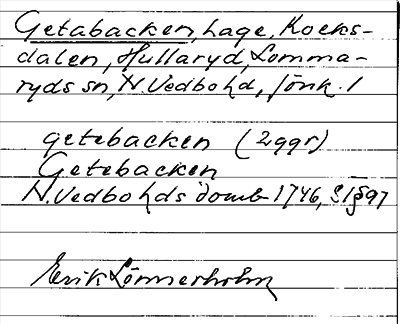 Getabacken, hage, Kocks-
dalen, Hullaryd, Lomma-
ryds sn, N. Vedbo hd, Jönk. l
getebacken (2 ggr)
Getebacken
N. Vedbo hds domb 1746, § 97
Erik Lönnerholm